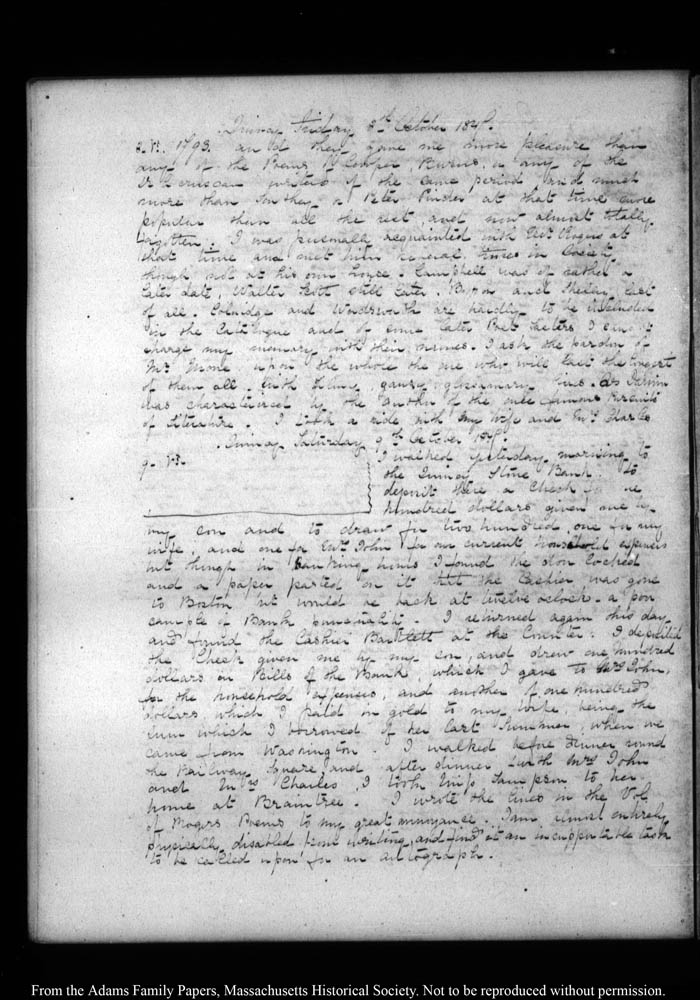 Quincy Friday 8th October 1847.
8. VI. 1793. and they gave me more pleasure than
any of the Poems of Cowper, Burns, or any of the
Della Cruscan writers of the same period and much
more than Southey or Peter Pindar at that time more
popular than all the rest, and now almost totally
forgotten. I was personally acquainted with Mr Rogers at
that time and met him several times in Society
though not at his own house. Campbell was of rather a
later date, Walter Scott still later. Byron and Shelley last
of all. Coleridge and Wordsworth are hardly to be included
in the Catalogue and of some later I
charge my memory with their names. I ask the pardon of
Mr Moore upon the whole the one who will last the longest
of them all, with filmy, gauzy, gossamary lines. As Darwin
was characterised by the author of the once famous Pursuits
of Literature. I took a ride with my wife and Mrs Charles
Quincy Saturday 9th October 1847.
9. VI. I walked yesterday morning to
the Quincy Stone Bank to
deposit there a Check for
hundred dollars given me by
my son and to draw for two hundred, one for my
wife, and one for Mrs John for our current household expences
but though in banking hours I found the door locked
and a paper pasted on it that the Cashier was gone
to Boston but would be back at twelve oclock. a poor
sample of Bank punctuality. I returned again this day
and found the Cashier Bartlett at the Counter. I deposited
the Check given me by my son, and drew one hundred
dollars in Bills of the Bank, which I gave to Mrs John,
for the household expences, and another of one hundred
dollars which I paid in gold to my wife, being the
sum which I borrowed of her last Summer, when we
came from Washington. I walked before dinner round
the Railway Square, and after dinner with Mrs John
and Mrs Charles, I took Miss Sampson to her
home at Braintree. I wrote the lines in the Vol
of Rogers Poems to my great annoyance. I am almost entirely
physically disabled from writing, and find it an insupportable task
to be called upon for an autograph.
From the Adams Family Papers, Massachusetts Historical Society. Not to be reproduced without permission.